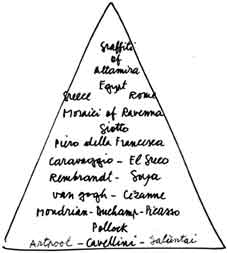 Graffiti
of
Altamira
Egypt
Greece Rome
Mosaici of Ravenna
Giotto
Piero della Francesca
Caravaggio - El Greco
Rembrandt - Goya
van Gogh - Cézanne
Mondrian-Duchamp-Picasso
Pollock
Artpool - Cavellini - Galántai